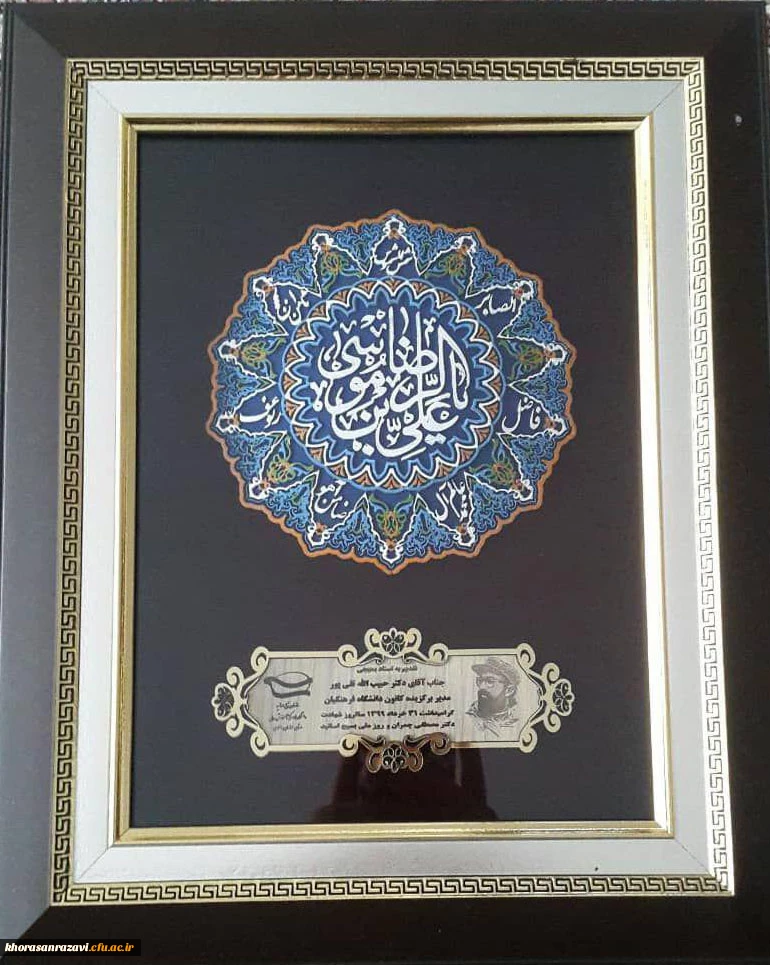 الصابر
فاضل
رئوف
یا علی بن موسی الرضا
تقدیم به استاد بسیجی
جناب آقای دکتر حبیب الله تقی پور
مدیر برگزیده کانون دانشگاه فرهنگیان
گرامیداشت ۳۱ خرداد ۱۳۹۹ سالروز شهادت
دکتر مصطفی چمران و روز ملی بسیج اساتید
khorasanrazavi.cfu.ac.ir